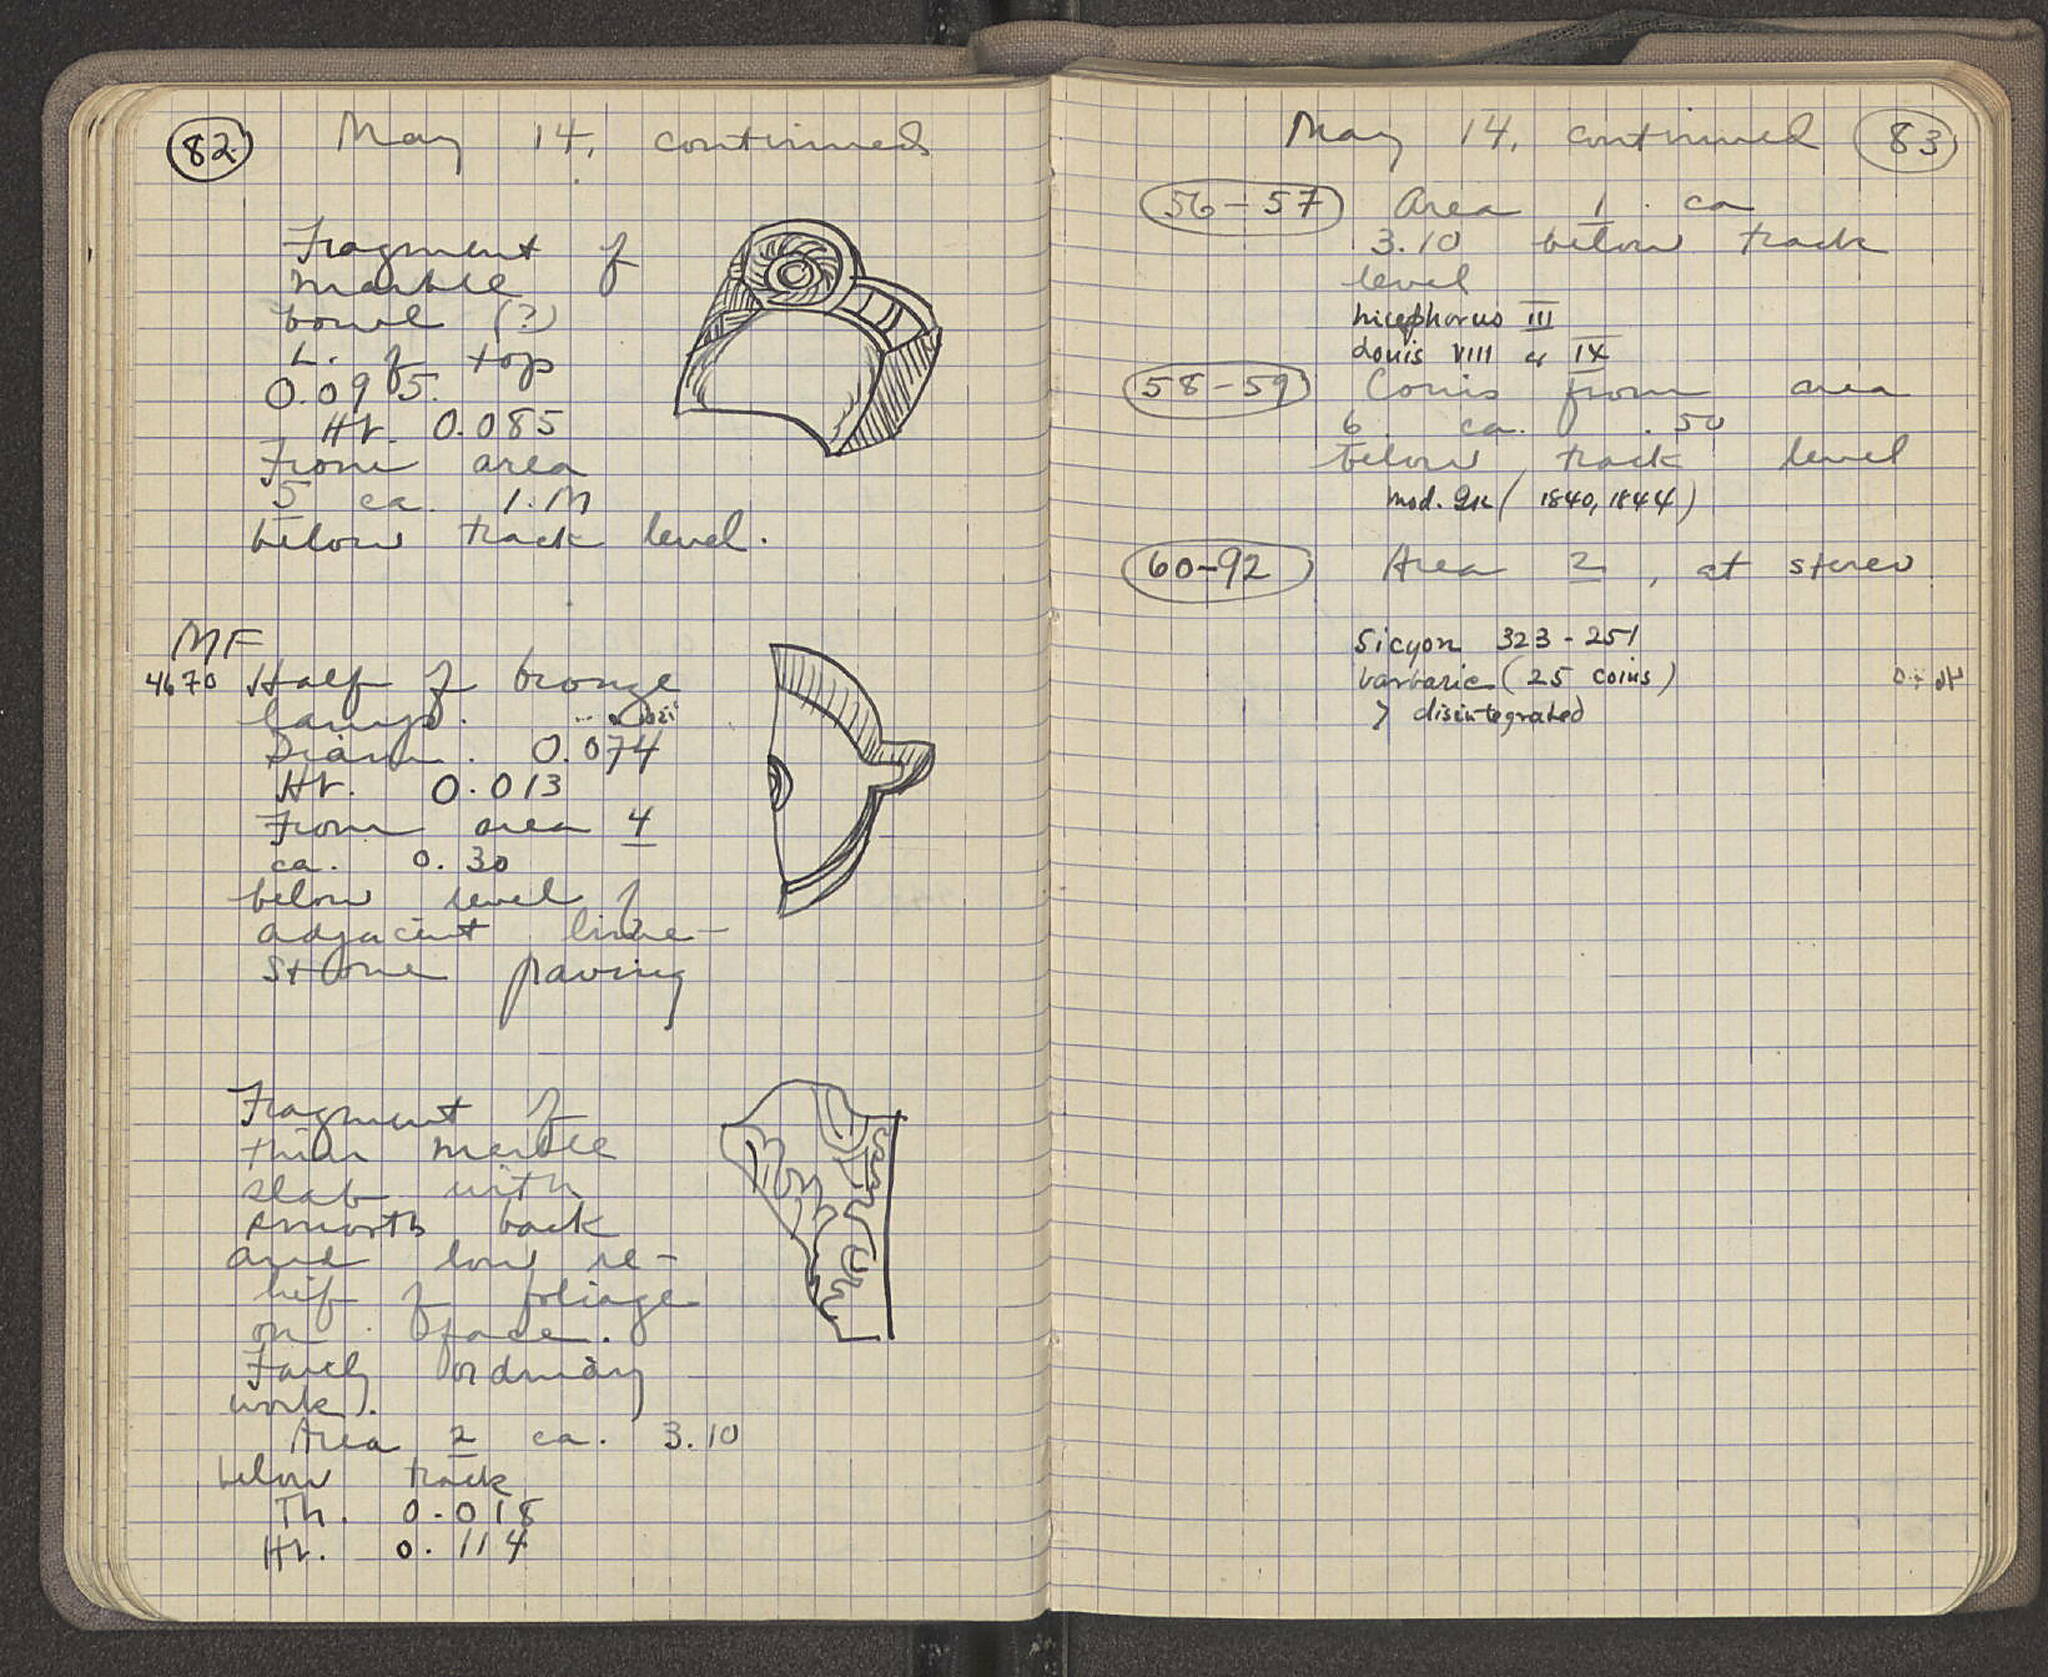 82 May 14, continued
Fragment of
marble
bowl (?)
L. of top
0.095.
Ht. 0.085
From area
5 ca. 1.M
below track level.
MF
4670 Half of bronze
lamp.
Diam. 0.074
Ht. 0.013
From area 4
ca. 0.30
below level of
adjacent lime-
stone paving
Fragment of
thin marble
slab with
smooth back
and low re-
lief of foliage
on face.
Fairly ordinary
work).
Area 2 ca. 3.10
below track
Th. 0.018
Ht. 0.114
May 14, continued 83
56-57 Area 1. ca
3.10 below track
level
Nicephorus III
Louis VIII or IX
58-59 Coins from area
6 ca. .50
below track level
mod. Gk (1840, 1844)
60-92 Area 2, at stereo
Sicyon 323-251
barbaric (25 coins)
7 disintegrated